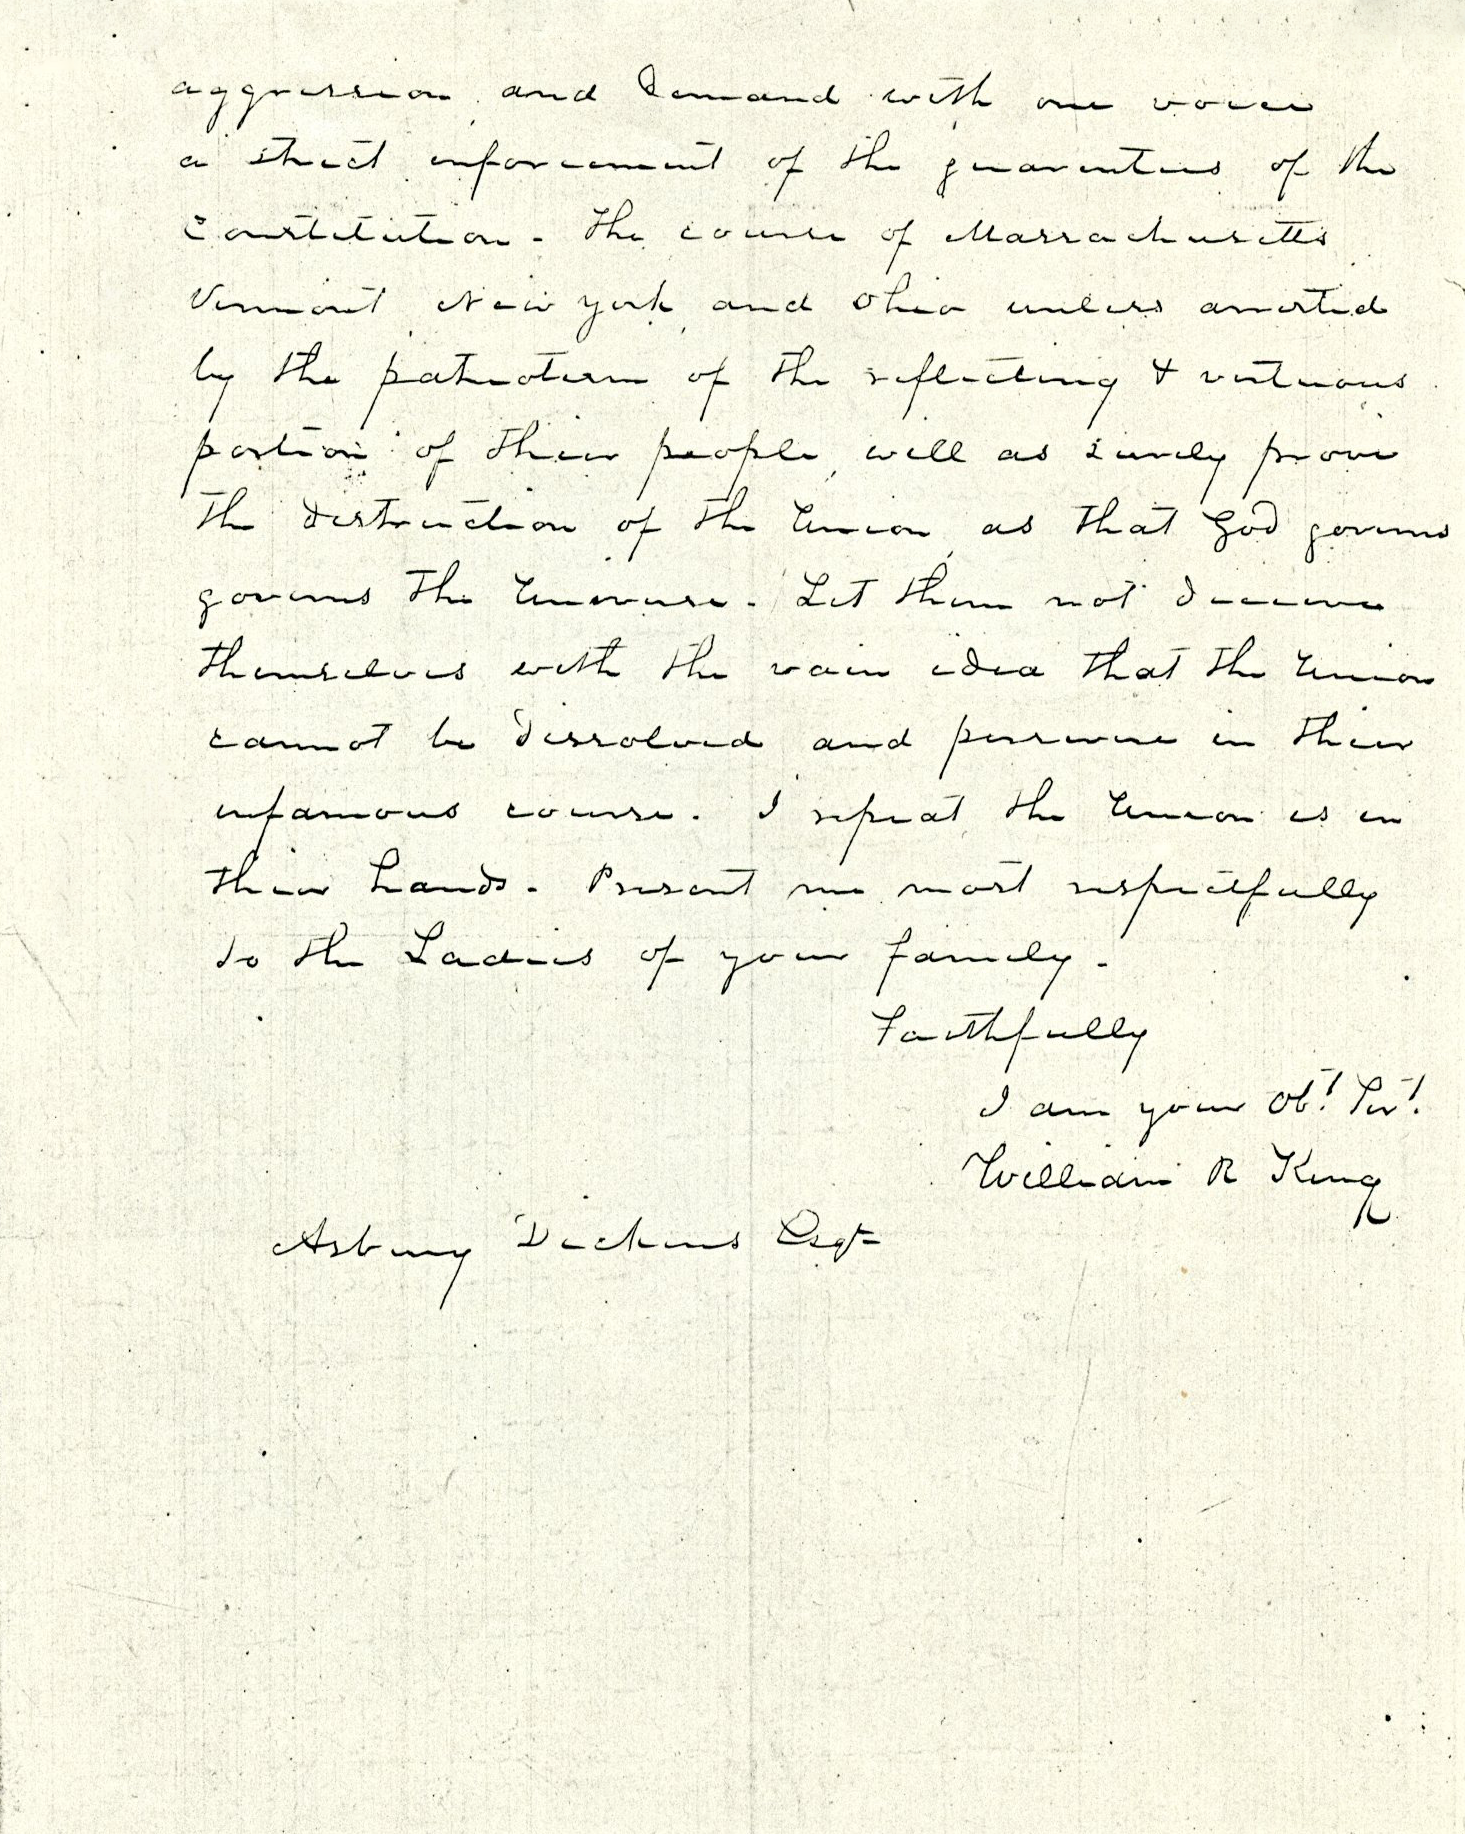 aggression and demand with one voice
a strict enforcement of the guarenties of the
Constitution - The course of Massachusetts
Vermont, New York, and Ohio unless arrested
by the patriotism of the reflecting & virtuous
portion of their people, will as surely prove
the destruction of the Union, as that God governs
governs the Universe - Let them not deceive
themselves with the vain idea that the Union
cannot be dissolved and persevere in their
infamous course. I repeat the Union is in
their hands - Present me most respectfully
to the Ladies of your family -
Faithfully
I am your Obt. Svt.
William R King
Asbury Dickins Esqr